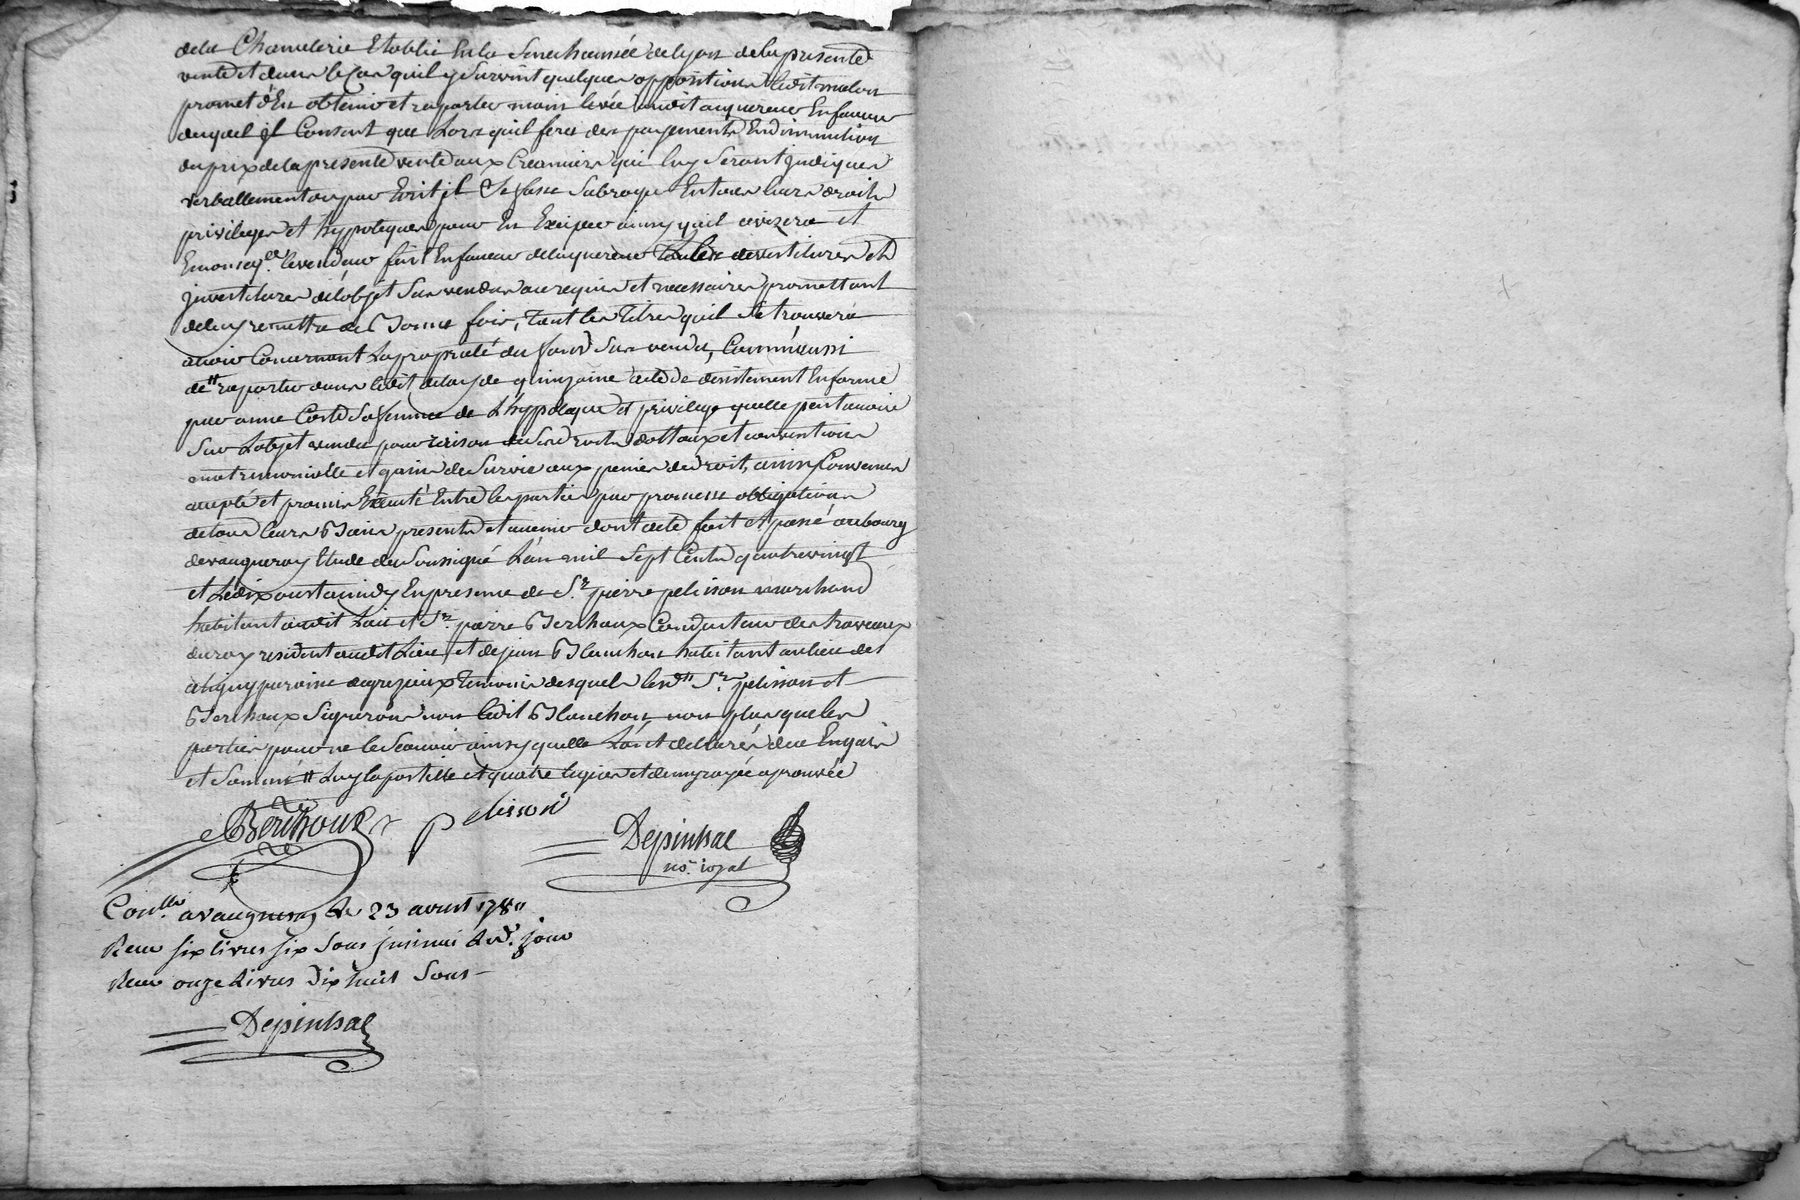 dela Chancelerie Etablie En la Senechaussée de lyon de la presente
vente et dans le Cas quil y Survint quelques oppositions ledit malon
promet d'En obtenir et raporter main levée audit acquereur En faveur
duquel jl Consent que Lors quil fera des payements En diminution
du prix de la presente vente aux Creanciers qui luy Seront jndiques
verballement ou par Ecrit jl Se fasse Subroger En tous leurs droits
privileges et hypoteques pour En Exciper ainsy quil avizera et
le vendeur fait En faveur de lacquereur toutes devestitures et
jnvestitures de l'objet Sus vendu au requis et necessaires promettant
de luy remettre de Bonne foy, tout les titres quil Se trouvera
avoir Concernant La proprieté du fond Sus vendu, Comm'aussi
de # raporter dans ledit delay de quinzaine acte de desistement En forme
par anne Coste Sa femme de L'hypoteque et privilege quelle peut avoir
Sur L'objet vendu pour raison de Ses droits dottaux et convention
matrimonialle et gains de Survie aux peines de droit, ainsy Convenu
accepté et promis Executé Entre les parties par promesse obligation
de tous leurs Biens presents et avenir dont acte fait et passé au bourg
de vaugneray Etude du Soussigné L'an mil Sept Cents quatre vingt
et Le dix aoust avant midy En presence de S.r pierre pelisson marchand
habitant audit Lieu et S.r pierre Berthoux Conducteur des travaux
du roy resident audit Lieu et de jean Blanchon habitant au lieu de
paroisse de grezieux temoins desquels S.r pelisson et
Berthoux Signeront non ledit Blanchon non plus que les
parties pour ne le Scavoir ainsy quelle L'ont declarés de ce Enquis
et Sommés # Luy la postille et quatre lignes et demy rayée aprouvée
Berthoux pelisson
Depinhac
no.re royal
Con.llé a vaugneray Le 23 aoust 1780
Receu six livres six Sous jnsinué led. jour
Receu onze Livres dix huit Sous
Depinhac